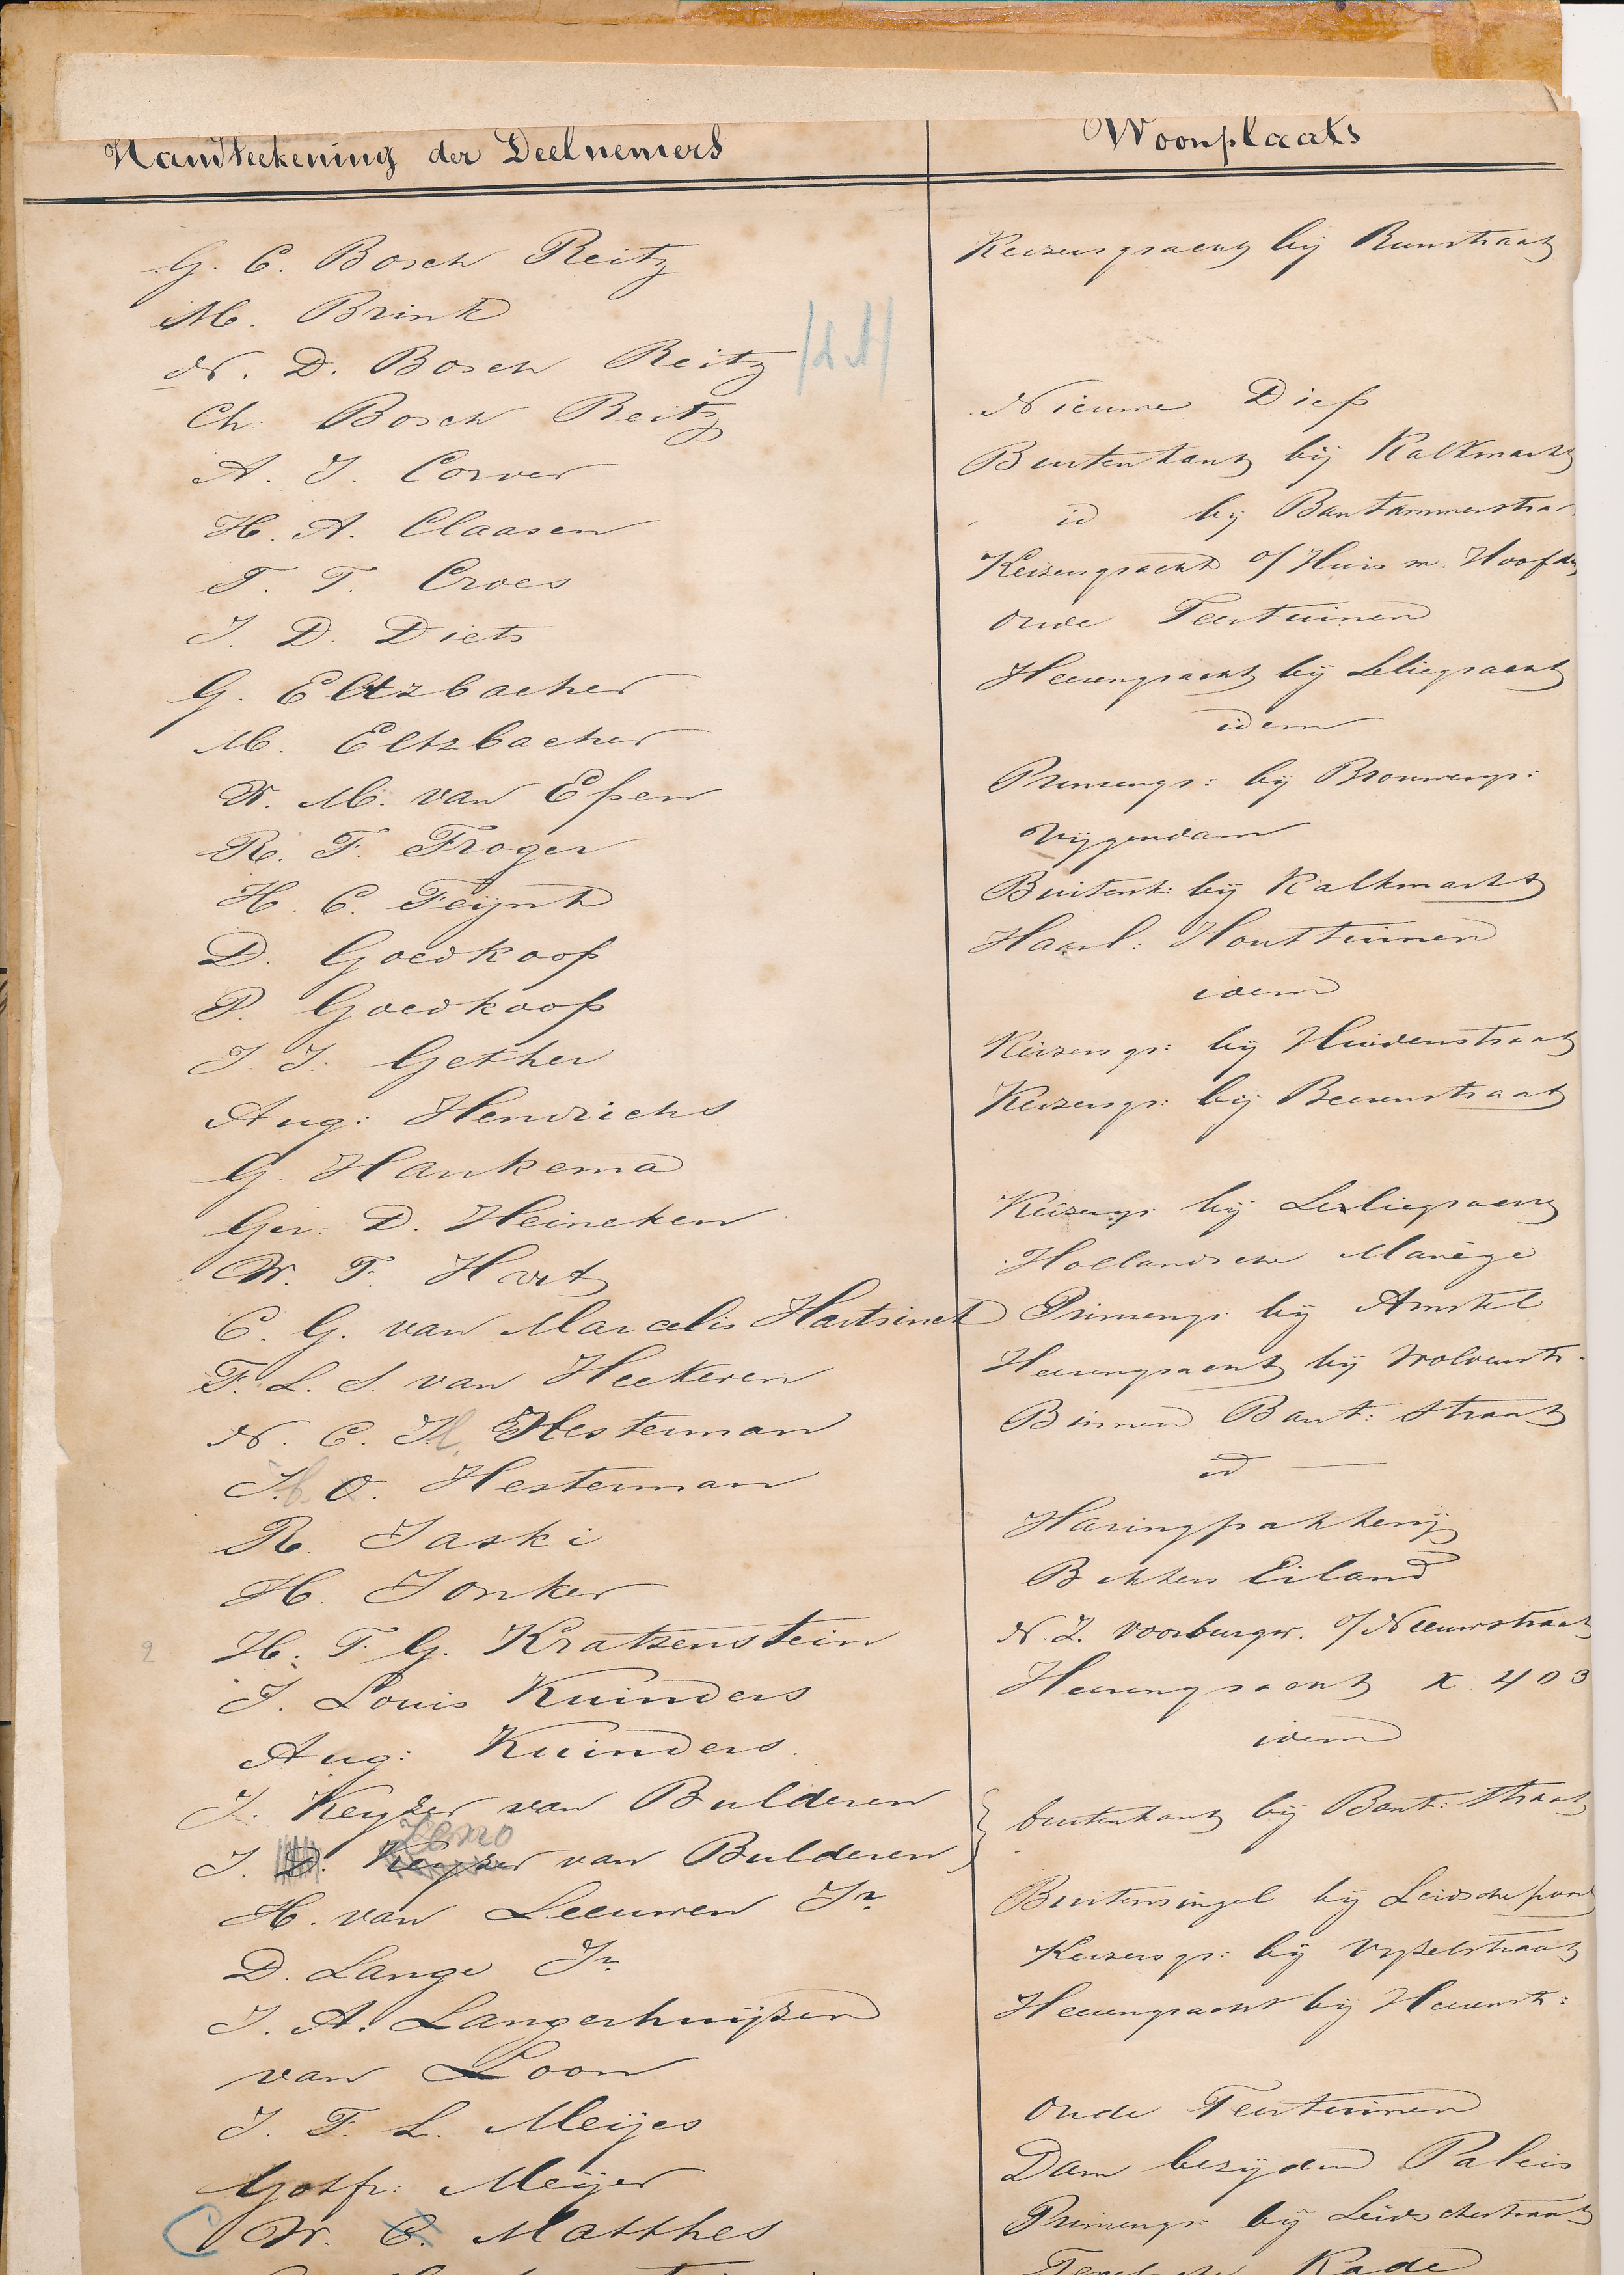 Handteekening der Deelnemers Woonplaats
G. C. Bosch Reitz Keizersgracht bij Runstraat
M. Brink
N. D. Bosch Reitz
Ch: Bosch Reitz Nieuwe Diep
A. J. Corver Buitenkant bij Kalkmarkt
H. A. Claasen id bij Bantammerstraa
T. T. Croes Keizersgracht o/ Huis m. Hoofden
J. D. Diets Oude Teertuinen
G. Eltzbacher Heerengracht bij Leliegracht
M. Eltzbacher idem
W. M. van Essen Prinsengr: bij Brouwersgr:
R. F. Froger Vijgendam
H. C. Feijnt Buitenk: bij Kalkmarkt
D. Goedkoop Haarl: Houttuinen
P. Goedkoop idem
J. J. Gether Keizersgr: bij Huidenstraat
Aug: Hendrichs Keizersgr: bij Beerenstraat
G. Hankema
Ger: D. Heineken Keizersgr: bij Leeliegracht
W. F. Hart Hollandsche Manége
C. G. van Marcelis Hartsinck Prinsengr: bij Amstel
F. L. S. van Heekeren Heerengracht bij Wolvenstr.
N. C. H. Hesterman Binnen Bant: straat
J. O. Hesterman id
R. Jaski Haringpakkerij
H. Jonker Bikkers Eiland
2 H. F. G. Kratzenstein N. Z. Voorburgw. o/ Nieuwstraat
J. Louis Kuinders Heerengracht K 403
Aug: Kuinders. idem
J. Keyzer van Bulderen buitenkant bij Bant: straat
J. D. Keyzer van Bulderen
H. van Leeuwen Jr. Buitensingel bij Leidsche poort
D. Lange Jr. Keizersgr: bij Vijzelstraat
J. A. Langerhuijzen Heerengracht bij Heerenstr:
van Loon
J. F. L. Meijes Oude Teertuinen
Gotfr: Meijer Dam bezijden Paleis
W. C. Matthes Prinsengr: bij Leidschestraat
Kade